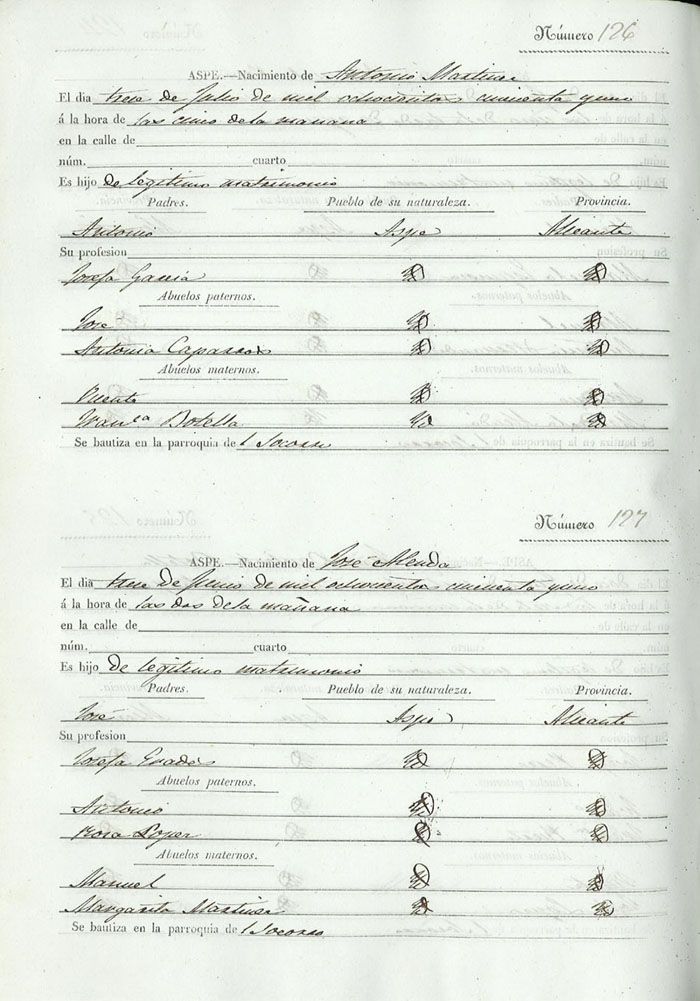 Número 126
ASPE.—Nacimiento de Antonio Martinez
El dia trece de Julio de mil ochocientos cincuenta y uno
á la hora de las cinco de la mañana
en la calle de
núm. cuarto
Es hijo de legitimo matrimonio
Padres. Pueblo de su naturaleza. Provincia.
Antonio Aspe Alicante
Su profesion
Josefa Garcia id id
Abuelos paternos.
José id id
Antonia id id
Abuelos maternos.
Vicente id id
Fran.ca Botella id id
Se bautiza en la parroquia de l Socorro
Número 127
ASPE.—Nacimiento de José
El dia trece de Junio de mil ochocientos cincuenta y uno
á la hora de las dos de la mañana
en la calle de
núm. cuarto
Es hijo de legitimo matrimonio
Padres. Pueblo de su naturaleza. Provincia.
José Aspe Alicante
Su profesion
Josefa id id
Abuelos paternos.
Antonio id id
Rosa Lopez id id
Abuelos maternos.
Manuel id id
Margarita Martinez id id
Se bautiza en la parroquia de l Socorro